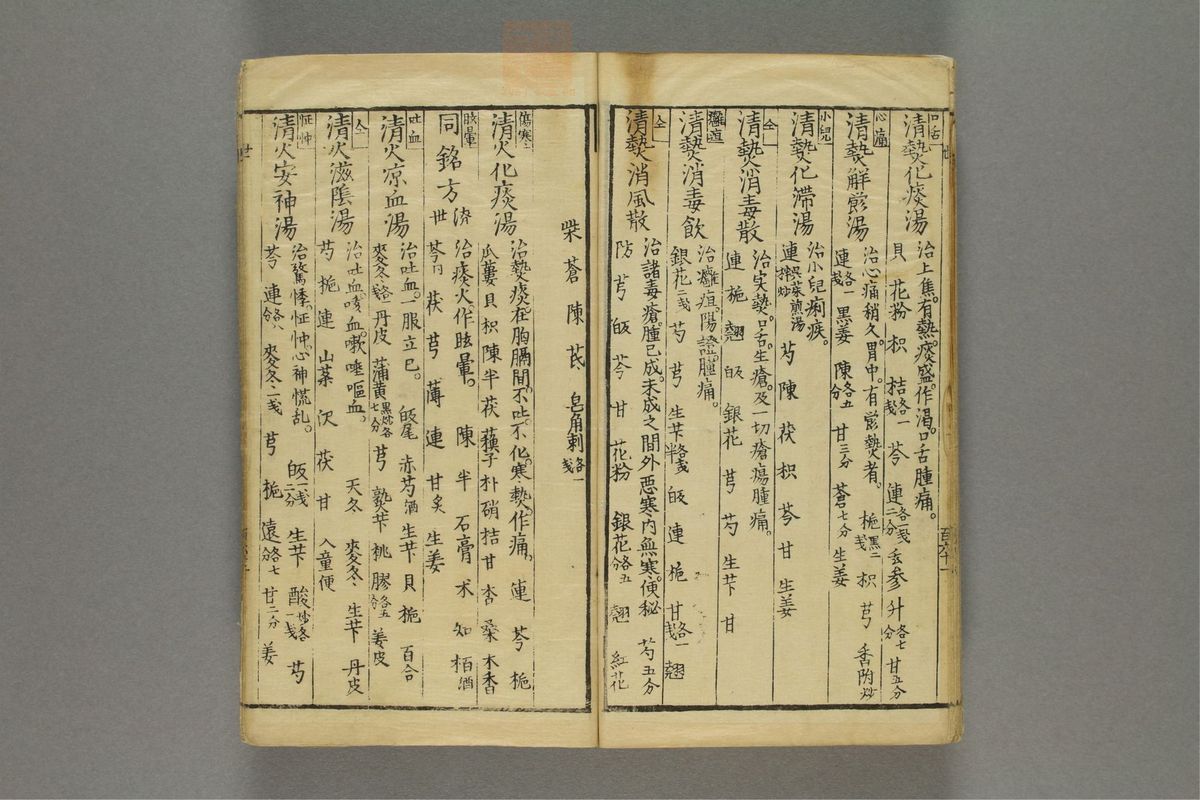 口舌
清熱化痰湯
治上焦。有熱。痰盛。作渴。口舌腫痛。
貝 花粉 枳 桔各一戔 芩 連各一戔二分 玄参 升各七分 甘五分
心痛
清熱解欝湯
治心痛稍久。胃中。有欝熱者。
連各一戔 黒姜 陳各五分 甘三分 蒼七分 生姜
梔黒二戔 枳 芎 香附炒
小兒
清熱化滞湯
治小兒痢疾。
連呉茱煎湯拌炒 芍 陳 茯 枳 芩 甘 生姜
仝
清熱消毒散
治実熱。口舌。生瘡。及一切瘡瘍腫痛。
連 梔 翹 皈 銀花 芎 芍 生芐 甘
癰疽
清熱消毒飲
治癰疽。陽證。腫痛。
銀花二戔 芍 芎 生芐各戔半 皈 連 梔 甘各一戔 翹
仝
清熱消風散
治諸毒瘡。腫已成。未成之間外惡寒。内無寒。便秘 芍五分
防 芎 皈 芩 甘 花粉 銀花各五分 翹 紅花
百六十一
柴 蒼 陳 芪 皂角刺各一戔
傷寒
清火化痰湯
治熱痰在胸膈間。不吐。不化。寒熱。作痛。 連 芩 梔
瓜蔞 貝 枳 陳 半 茯 蘓子 朴硝 桔 甘 杏 桑 木香
眩暈
同銘方
済世
治痰火作眩暈。 陳 半 石膏 术 知 栢酒
芩 茯 芎 薄 連 甘炙 生姜
吐血
清火凉血湯
治吐血。一服立已。 皈尾 赤芍酒 生芐 貝 梔 百合
麥冬各戔 丹皮 蒲黄黒炒各七分 芎 熟芐 桃 膠各五分 姜皮
仝
清火滋陰湯
治吐血咳血。嗽唾嘔血。 天冬 麥冬 生芐 丹皮
芍 梔 連 山薬 沢 茯 甘 入童便
怔忡
清火安神湯
治驚悸。怔忡。心神慌乱。 皈一戔二分 生芐 酸炒各一戔 芍
芩 連各八分 麥冬二戔 芎 梔 遠各七分 甘二分 姜